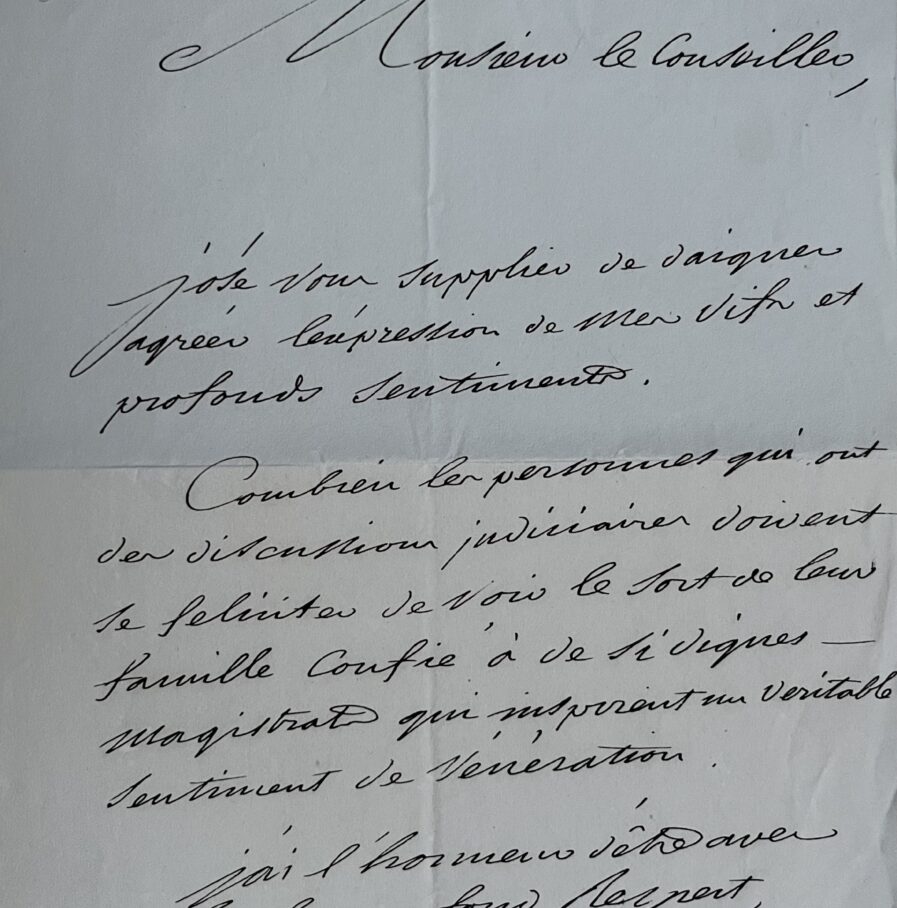 Monsieur le Conseiller,
j'ósé vous supplier de daigner
agréer l'expression de mes vifs et
profonds sentiments.
Combien les personnes qui ont
des discussions judiciaires doivent
se feliciter de voir le sort de leur
famille Confié à de si dignes —
magistrats qui inspirent un veritable
sentiment de vénération.
j'ai l'honneur d'être avec
fond Respect,